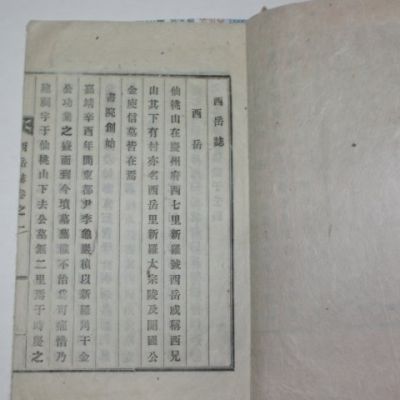 西岳誌
西岳
仙桃山在慶州府西七里新羅號西岳或稱西兄
山其下有村亦名西岳里新羅太宗陵及開國公
金庾信墓皆在焉
書院創始
嘉靖辛酉年間東都尹李龜巖楨以新羅角干金
公功業之盛而到今墳墓蕪穢不治爲可痛惜乃
建祠宇于仙桃山下去公墓無二里焉于時慶之
西岳誌卷之一